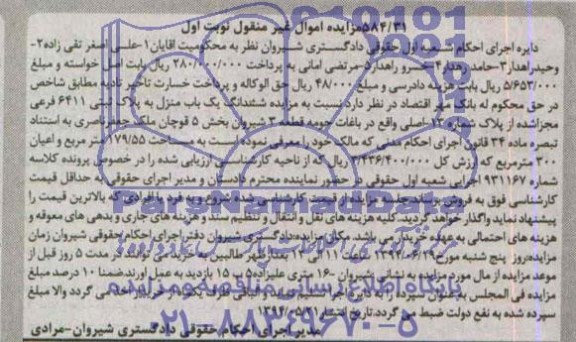 ۵۸۴/۳۱مزایده اموال غیر منقول نوبت اول
دایره اجرای احکام شعبه اول حقوقی دادگستری شیروان نظر به محکومیت اقایان۱-علی اصغر تقی زاده۲-
وحیدراهدار۳-حامدراهدار۴-خسرو راهدار۵-مرتضی امانی به پرداخت ۲۸۰/۰۰۰/۰۰۰ ریال بابت اصل خواسته و مبلغ
۵/۶۵۳/۰۰۰ ریال بابت هزینه دادرسی و مبلغ ۴۸۰۰۰ ریال حق الوکاله و پرداخت خسارت تاخیر تادیه مطابق شاخص
در حق محکوم له بانک مهر اقتصاد در نظر دارد نسبت به مزایده ششدانگ یک باب منزل به پلاک ثبتی ۶۴۱۱ فرعی
مجزاشده از پلاک شماره ۱۳-اصلی واقع در باغات حومه قطعه ۳ شیروان بخش ۵ قوچان ملکی جعفر ناصری به استناد
تبصره ماده ۳۴ قانون اجرای احکام مدنی که مالک خود را معرفی نموده نسبت به مساحت ۱۷۹/۵۵ متر مربع و اعیان
۳۰۰ مترمربع که ارزش کل ۳/۴۳۶/۴۰۰/۰۰۰ ریال که از ناحیه کارشناسی ارزیابی شده را در خصوص پرونده کلاسه
شماره ۹۳۱۱۶۷ اجرایی شعبه اول حقوقی در حضور نماینده محترم دادستان و مدیر اجرای حقوقی به حداقل قیمت
کارشناسی فوق به فروش برساند جلسه مزایده از قیمت کارشناسی شده شروع و به فرد یا افرادی که بالاترین قیمت را
پیشنهاد نماید واگذار خواهد گردید. کلیه هزینه های نقل و انتقال و تنظیم سند و هزینه های جاری و بدهی های معوقه و
هزینه های احتمالی به عهده خریدار می باشد. مکان مزایده دادگستری شیروان دفتر اجرای احکام حقوقی شیروان زمان
مزایده روز پنج شنبه مورخ ۱۳۹۴/۰۶/۲۹ ساعت ۱۱ الی ۱۲ بعداز ظهر طالبین به خرید می توانند در مدت ۵ روز قبل از
موعد مزایده از مال مورد مزایده به نشانی شیروان -۱۶ متری علیزاده ۵ پ ۱۵ بازدید به عمل اورند ضمنا ۱۰ درصد مبلغ
مزایده فی المجلس به عنوان سپرده را به دایره اجرا تسلیم نماید و الباقی ظرف یکماه از خریدار اخذ می گردد والا مبلغ
سپرده شده به نفع دولت ضبط می گردد.تاریخ انتشار:۱۳۹۴/۰۵/۳۱
مدیر اجرای احکام حقوقی دادگستری شیروان-مرادی
پایگاه اطلاع رسانی مناقصه و مزایده
۰۲۱-۸۸۳۴۹۶۷۰-۵